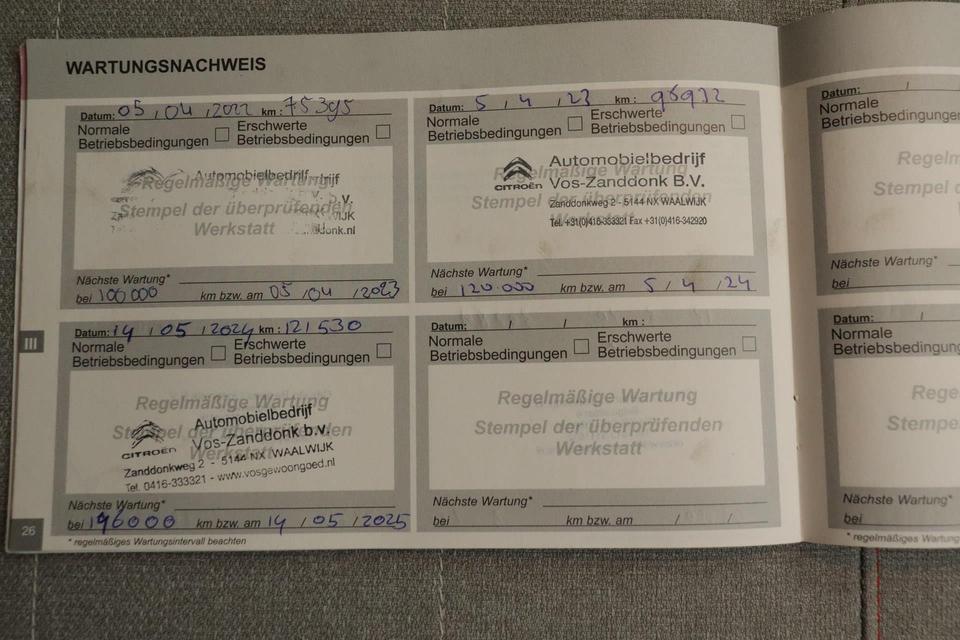 WARTUNGSNACHWEIS
Datum: 05 / 04 / 2022 km: 75395
Normale
Betriebsbedingungen
Erschwerte
Betriebsbedingungen
Automobielbedrijf
Regelmäßige Wartung
Stempel der überprüfenden
Werkstatt
Nächste Wartung*
bei 100000 km bzw. am 05 / 04 / 2023
Datum: 5 / 4 / 23 km:
Normale
Betriebsbedingungen
Erschwerte
Betriebsbedingungen
Automobielbedrijf
Regelmäßige Wartung
CITROËN Vos-Zanddonk B.V.
Stempel der überprüfenden
Zanddonkweg 2 - 5144 NX WAALWIJK
Werkstatt
Tel. +31(0)416-333321 Fax +31(0)416-342920
Nächste Wartung*
bei 120.000 km bzw. am 5 / 4 / 24
III
Datum: 14 / 05 / 2024 km: 121530
Normale
Betriebsbedingungen
Erschwerte
Betriebsbedingungen
Regelmäßige Wartung
Automobielbedrijf
Stempel der überprüfenden
Vos-Zanddonk b.v.
CITROËN
Werkstatt
Zanddonkweg 2 - 5144 NX WAALWIJK
Tel. 0416-333321 - www.vosgewoongoed.nl
Nächste Wartung*
bei km bzw. am 14 / 05 / 2025
Datum: / / km:
Normale
Betriebsbedingungen
Erschwerte
Betriebsbedingungen
Regelmäßige Wartung
Stempel der überprüfenden
Werkstatt
Nächste Wartung*
bei km bzw. am / /
26
* regelmäßiges Wartungsintervall beachten
Datum: /
Normale
Betriebsbedingungen
Regelm
Stempel d
Nächste Wartung*
bei
Datum: /
Normale
Betriebsbedingung
Regelm
Stempel d
Nächste Wartung*
bei
* regelmäßiges Wartung